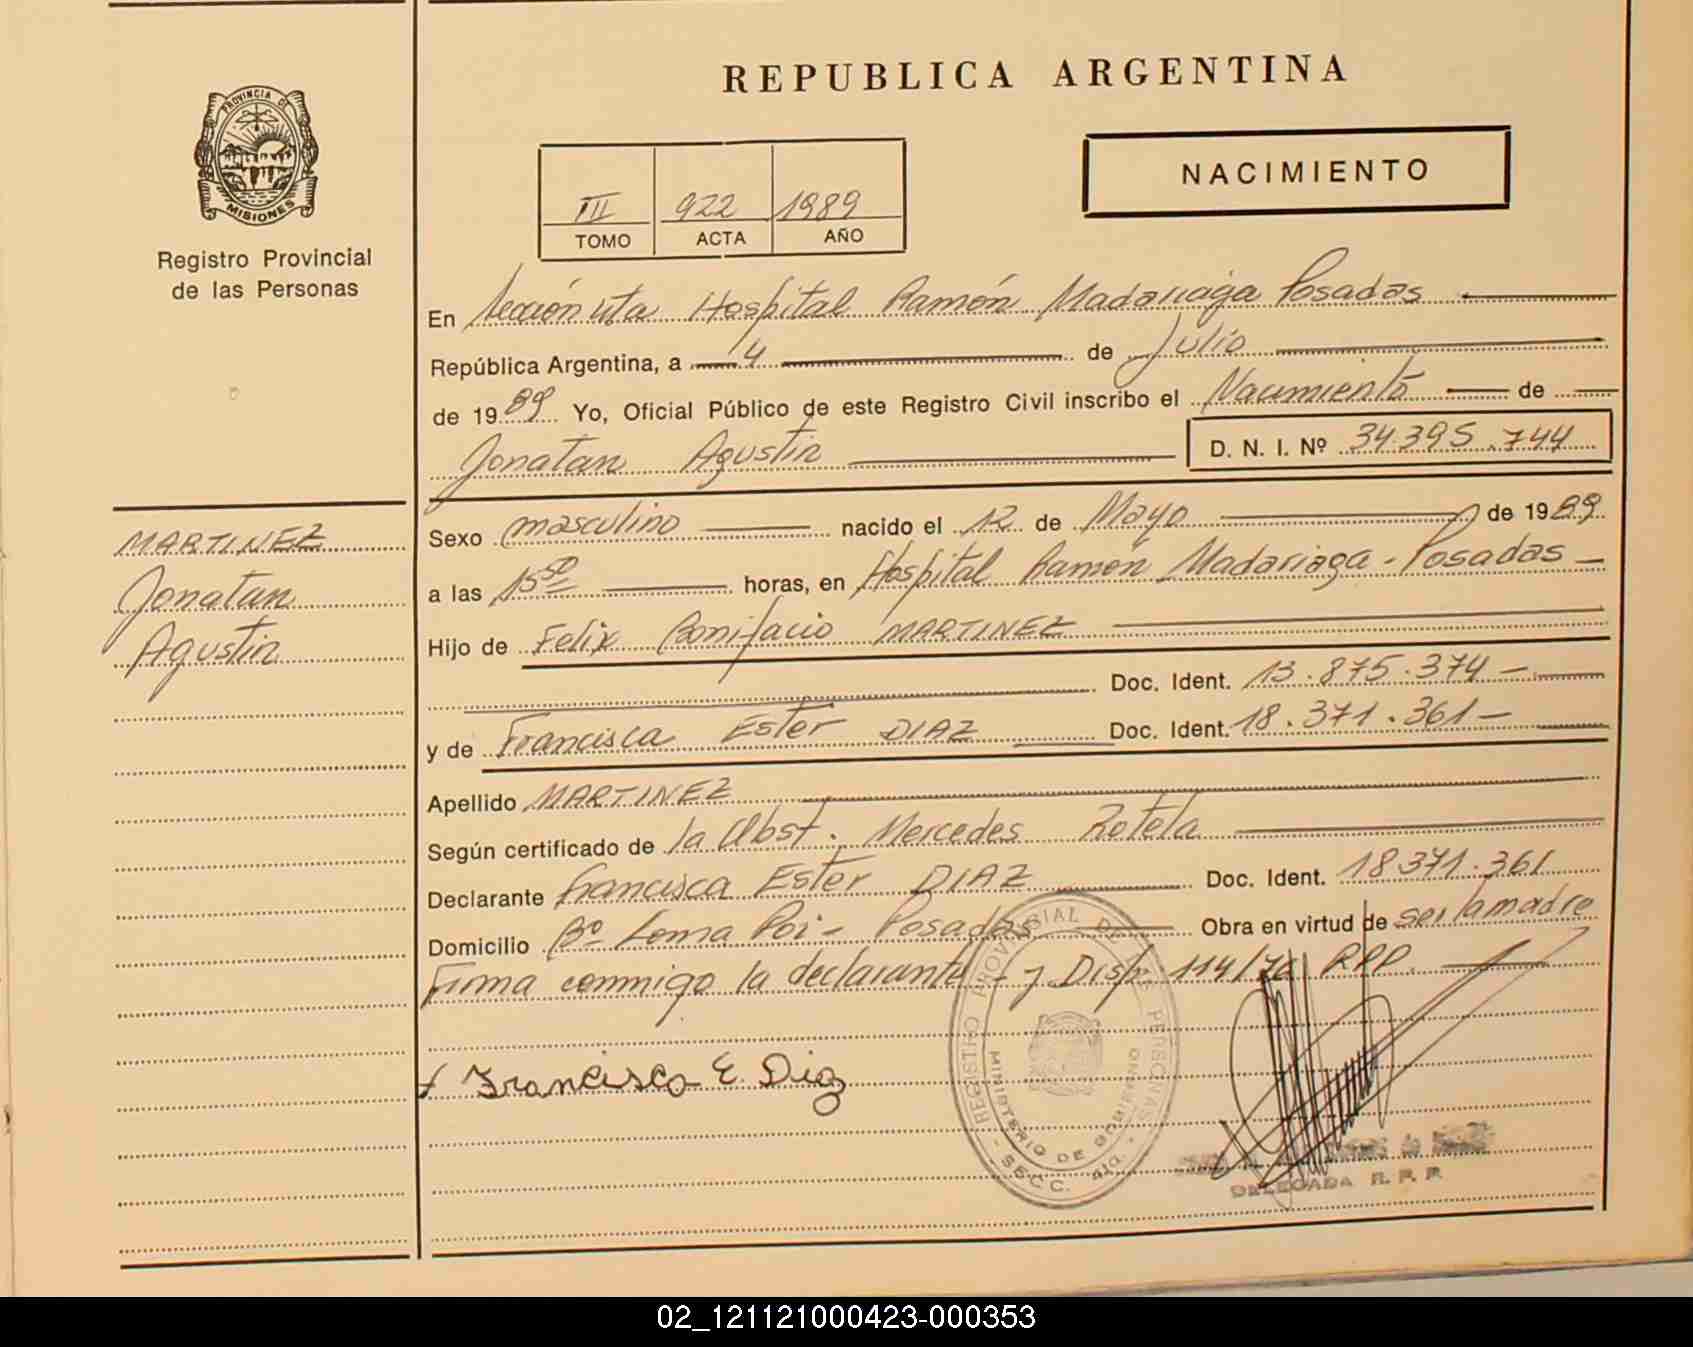 REPUBLICA ARGENTINA
PROVINCIA DE
MISIONES
Registro Provincial
de las Personas
NACIMIENTO
III 922 1989
TOMO ACTA AÑO
En Sección 4ta Hospital Ramón Madariaga Posadas
República Argentina, a 4 de Julio
de 1989 Yo, Oficial Público de este Registro Civil inscribo el Nacimiento de
Jonatan Agustin D. N. I. Nº 34.395.744
MARTINEZ
Jonatan
Agustin
Sexo masculino nacido el 12 de Mayo de 1989
a las 15 50 horas, en Hospital Ramón Madariaga - Posadas
Hijo de Felix Bonifacio MARTINEZ
Doc. Ident. 13.875.374
y de Francisca Ester DIAZ Doc. Ident. 18.371.361
Apellido MARTINEZ
Según certificado de la Obst. Mercedes Rotela
Declarante Francisca Ester DIAZ Doc. Ident. 18371.361
Domicilio Bº Loma Poi - Posadas Obra en virtud de ser la madre
Firma conmigo la declarante - y Disp. 114/76 RPP.
Francisca E Diaz
REGISTRO PROVINCIAL DE LAS PERSONAS
MINISTERIO DE GOBIERNO
- SECC. 4ta. -
DELEGADA R. P. P.
02_121121000423-000353